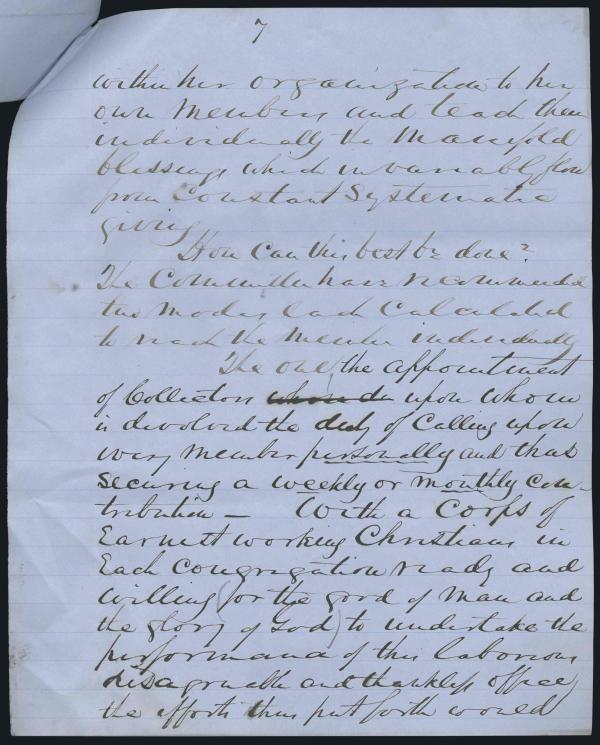 7
within her organization to her
own Members and teach them
individually the Manifold
blessings which invariably flow
from Constant Systematic
giving
How can this best be done?
The Committee have recommended
two modes, each Calculated
to reach the Member individually
The one, the appointment
of Collectors upon whom
is devolved the duty of Calling upon
every member personally and thus
securing a weekly or monthly con-
tribution — With a Corps of
Earnest working Christians in
Each Congregation ready and
willing (for the good of Man and
the glory of God) to undertake the
performance of this laborious
disagreeable and thankless office,
the efforts thus put forth would